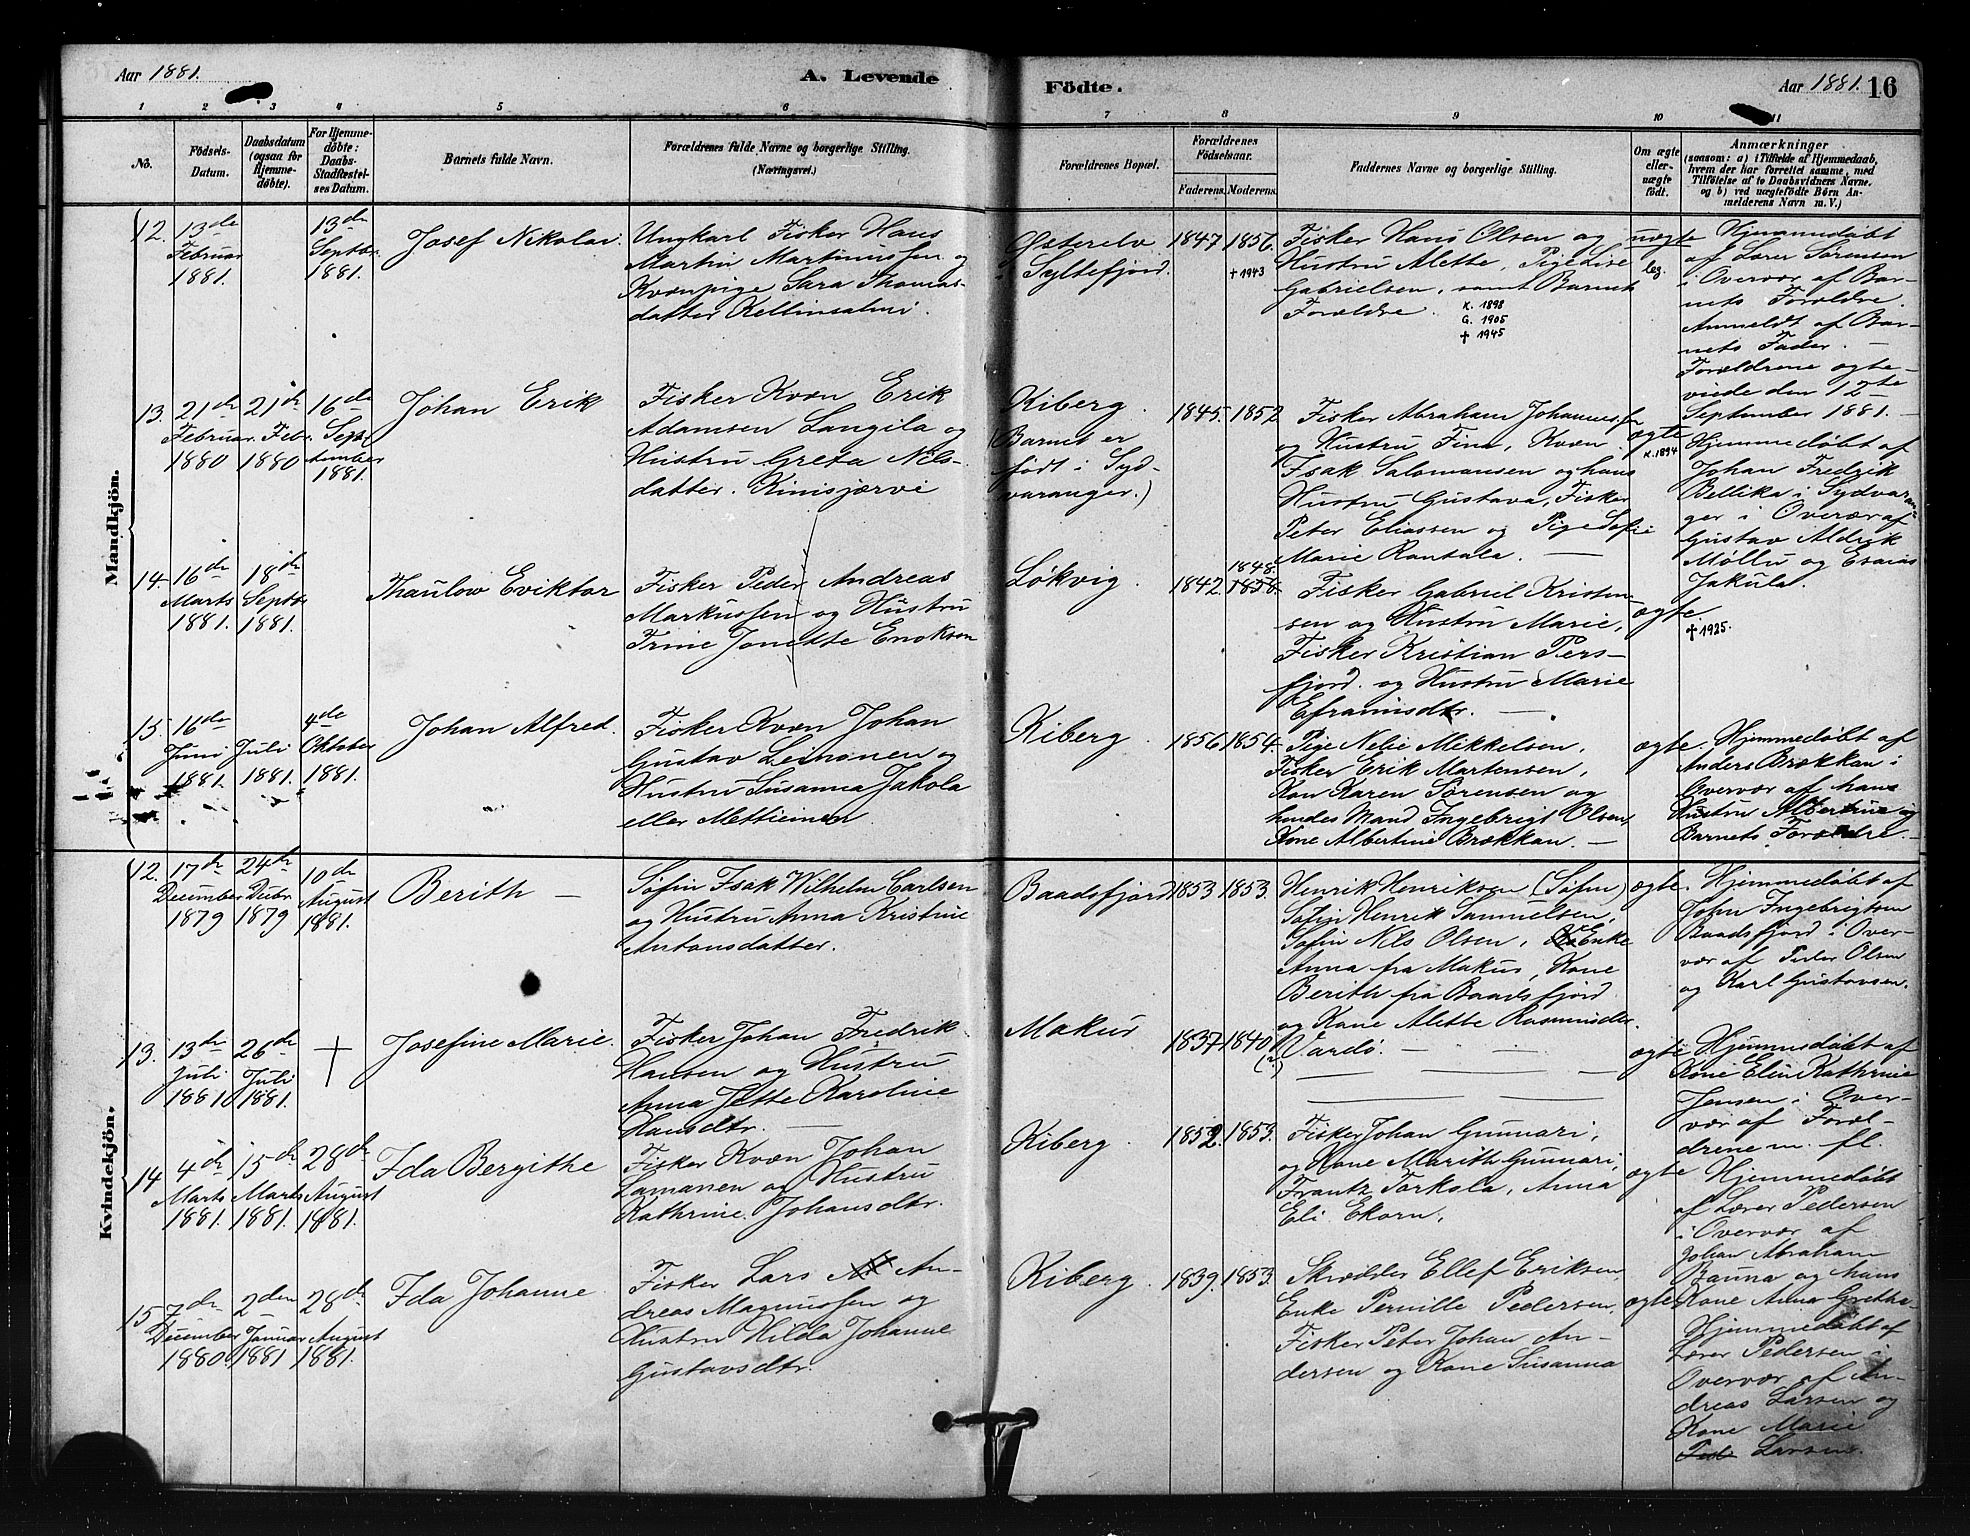 Aar 1881.
A. Levende
Födte.
Aar 1881. 16
1 2 3 4 5 6 7 8 9 10 11
No.
Födsels-Datum.
Daabsdatum (ogsaa for Hjemmedøbte).
For Hjemmedøbte: Daabs-Stadfæstelses Datum.
Barnets fulde Navn.
Forældrenes fulde Navne og borgerlige Stilling. (Næringsvei.)
Forældrenes Bopæl.
Forældrenes Födselsaar.
Faderens. Moderens.
Faddernes Navne og borgerlige Stilling.
Om ægte eller uægte født.
Anmærkninger
(saasom: a) i Tilfælde af Hjemmedaab, hvem der har forrettet samme, med Tilføielse af to Daabsvidners Navne, og b) ved uægtefødte Børn Anmelderens Navn m. V.)
Mandkjön.
12. 13de Februar 1881.
13de Septbr 1881.
Josef Nikolai.
Ungkarl Fisker Hans
Martin Martinussen og
Kvænpige Sara Thomas-
datter Keltinsalmi.
Østerelv
i Syltefjord.
1847 1856.
† 1943
Fisker Hans Olsen og
Hustru Alette, Pige Lise
Gabrielsen, samt Barnets
Forældre.
K. 1898
G. 1905
† 1945
uægte
leg.
Hjemmedøbt
af Lærer Sørensen
i Overvær af Bar-
nets Forældre.
Anmeldt af Bar-
nets Fader. —
Forældrene ægte-
viede den 12te
September 1881. —
13. 21de Februar 1880
21de Febr. 1880
16de September 1881.
Johan Erik
Fisker Kvæn Erik
Adamsen Langila og
Hustru Greta Nils-
datter. Kinisjærvi
Kiberg.
(Barnet er
født i Syd-
varanger.)
1845. 1852
Fisker Abraham Johannes.
og Hustru Fina, Kvæn
Isak Salomonsen og hans
Hustru Gustava, Fisker
Peter Eliassen og Pige Sofie
Marie Rantala. —
ægte
K. 1894
Hjemmedøbt af
Johan Fredrik
Bellika i Sydvaran-
ger i Overvær af
Gustav Aldrik
Møllu og Esaias
Jakula.
14. 16de Marts 1881.
18de Septbr 1881.
Thaulow Eviktor
Fisker Peder Andreas
Markussen og Hustru
Trine Jonette Enoksen
Løkvig.
1842. 1848. 1858.
Fisker Gabriel Kristen-
sen og Hustru Marie,
Fisker Kristian Pers-
fjord. og Hustru Marie
Eframisdtr. —
ægte.
† 1925.
15. 16de Juni 1881
Juli 1881.
4de Oktober 1881.
Johan Alfred.
Fisker Kvæn Johan
Gustav Leinonen og
Hustru Susanna Jakola
eller Mettieinen
Kiberg.
1856. 1854.
Pige Nelie Mikkelsen,
Fisker Erik Martensen,
Kon Karen Sørensen og
hendes Mand Ingebrigt Olsen,
Kone Albertine Brækkan. —
ægte.
Hjemmedøbt af
Anders Brækkan i
Overvær af hans
Hustru Albertine og
Barnets Forældre. —
Kvindekjön.
12. 17de December 1879
24de Decbr 1879
10de August 1881.
Berith —
Søfin Isak Wilhelm Carlsen
og Hustru Anna Kristine
Antonsdatter.
Baadsfjord
1853. 1853.
Henrik Henriksen (Søfin)
Søfin Henrik Samuelsen,
Søfin Nils Olsen, Enke
Anna fra Makur, Kone
Berith fra Baadsfjord
og Kone Alette Rasmusdtr.
Vardø. —
ægte.
Hjemmedøbt af
John Ingebrigtsen
Baadsfjord i Over-
vær af Peder Olsen
og Karl Gustavsen.
13. 13de Juli 1881
26de Juli 1881.
†
Josefine Marie.
Fisker Johan Fredrik
Hansen og Hustru
Anna Jette Karoline
Hansdtr. —
Makur
1837 1840 (?)
ægte
Hjemmedøbt af
Kone Elen Kathrine
Jensen i Over-
vær af Foræl-
drene m. fl.
14 4de Marts 1881.
15de Marts 1881.
28de August 1881.
Ida Bergithe
Fisker Kvæn Johan
Lamanen og Hustru
Kathrine Johansdtr.
Kiberg.
1852. 1853.
Fisker Johan Gunnari,
og Kone Marith Gunnari,
Frantz Torkola, Anna
Eli Ekorn.
ægte
Hjemmedøbt
af Lærer Pedersen
i Overvær af
Johan Abraham
Rauna og hans
Kone Anna Gretha.
15. 7de December 1880
2den Januar 1881
28de August 1881.
Ida Johanne
Fisker Lars An-
dreas Magnussen og
Hustru Hilda Johanne
Gustavsdtr.
Kiberg.
1839. 1853.
Skrædder Ellef Eriksen,
Enke Pernille Pedersen,
Fisker Peter Johan An-
dersen og Kone Susanna
ægte
Hjemmedøbt af
Lærer Pedersen i
Overvær af An-
dreas Larsen og
Kone Marie
Larsen.